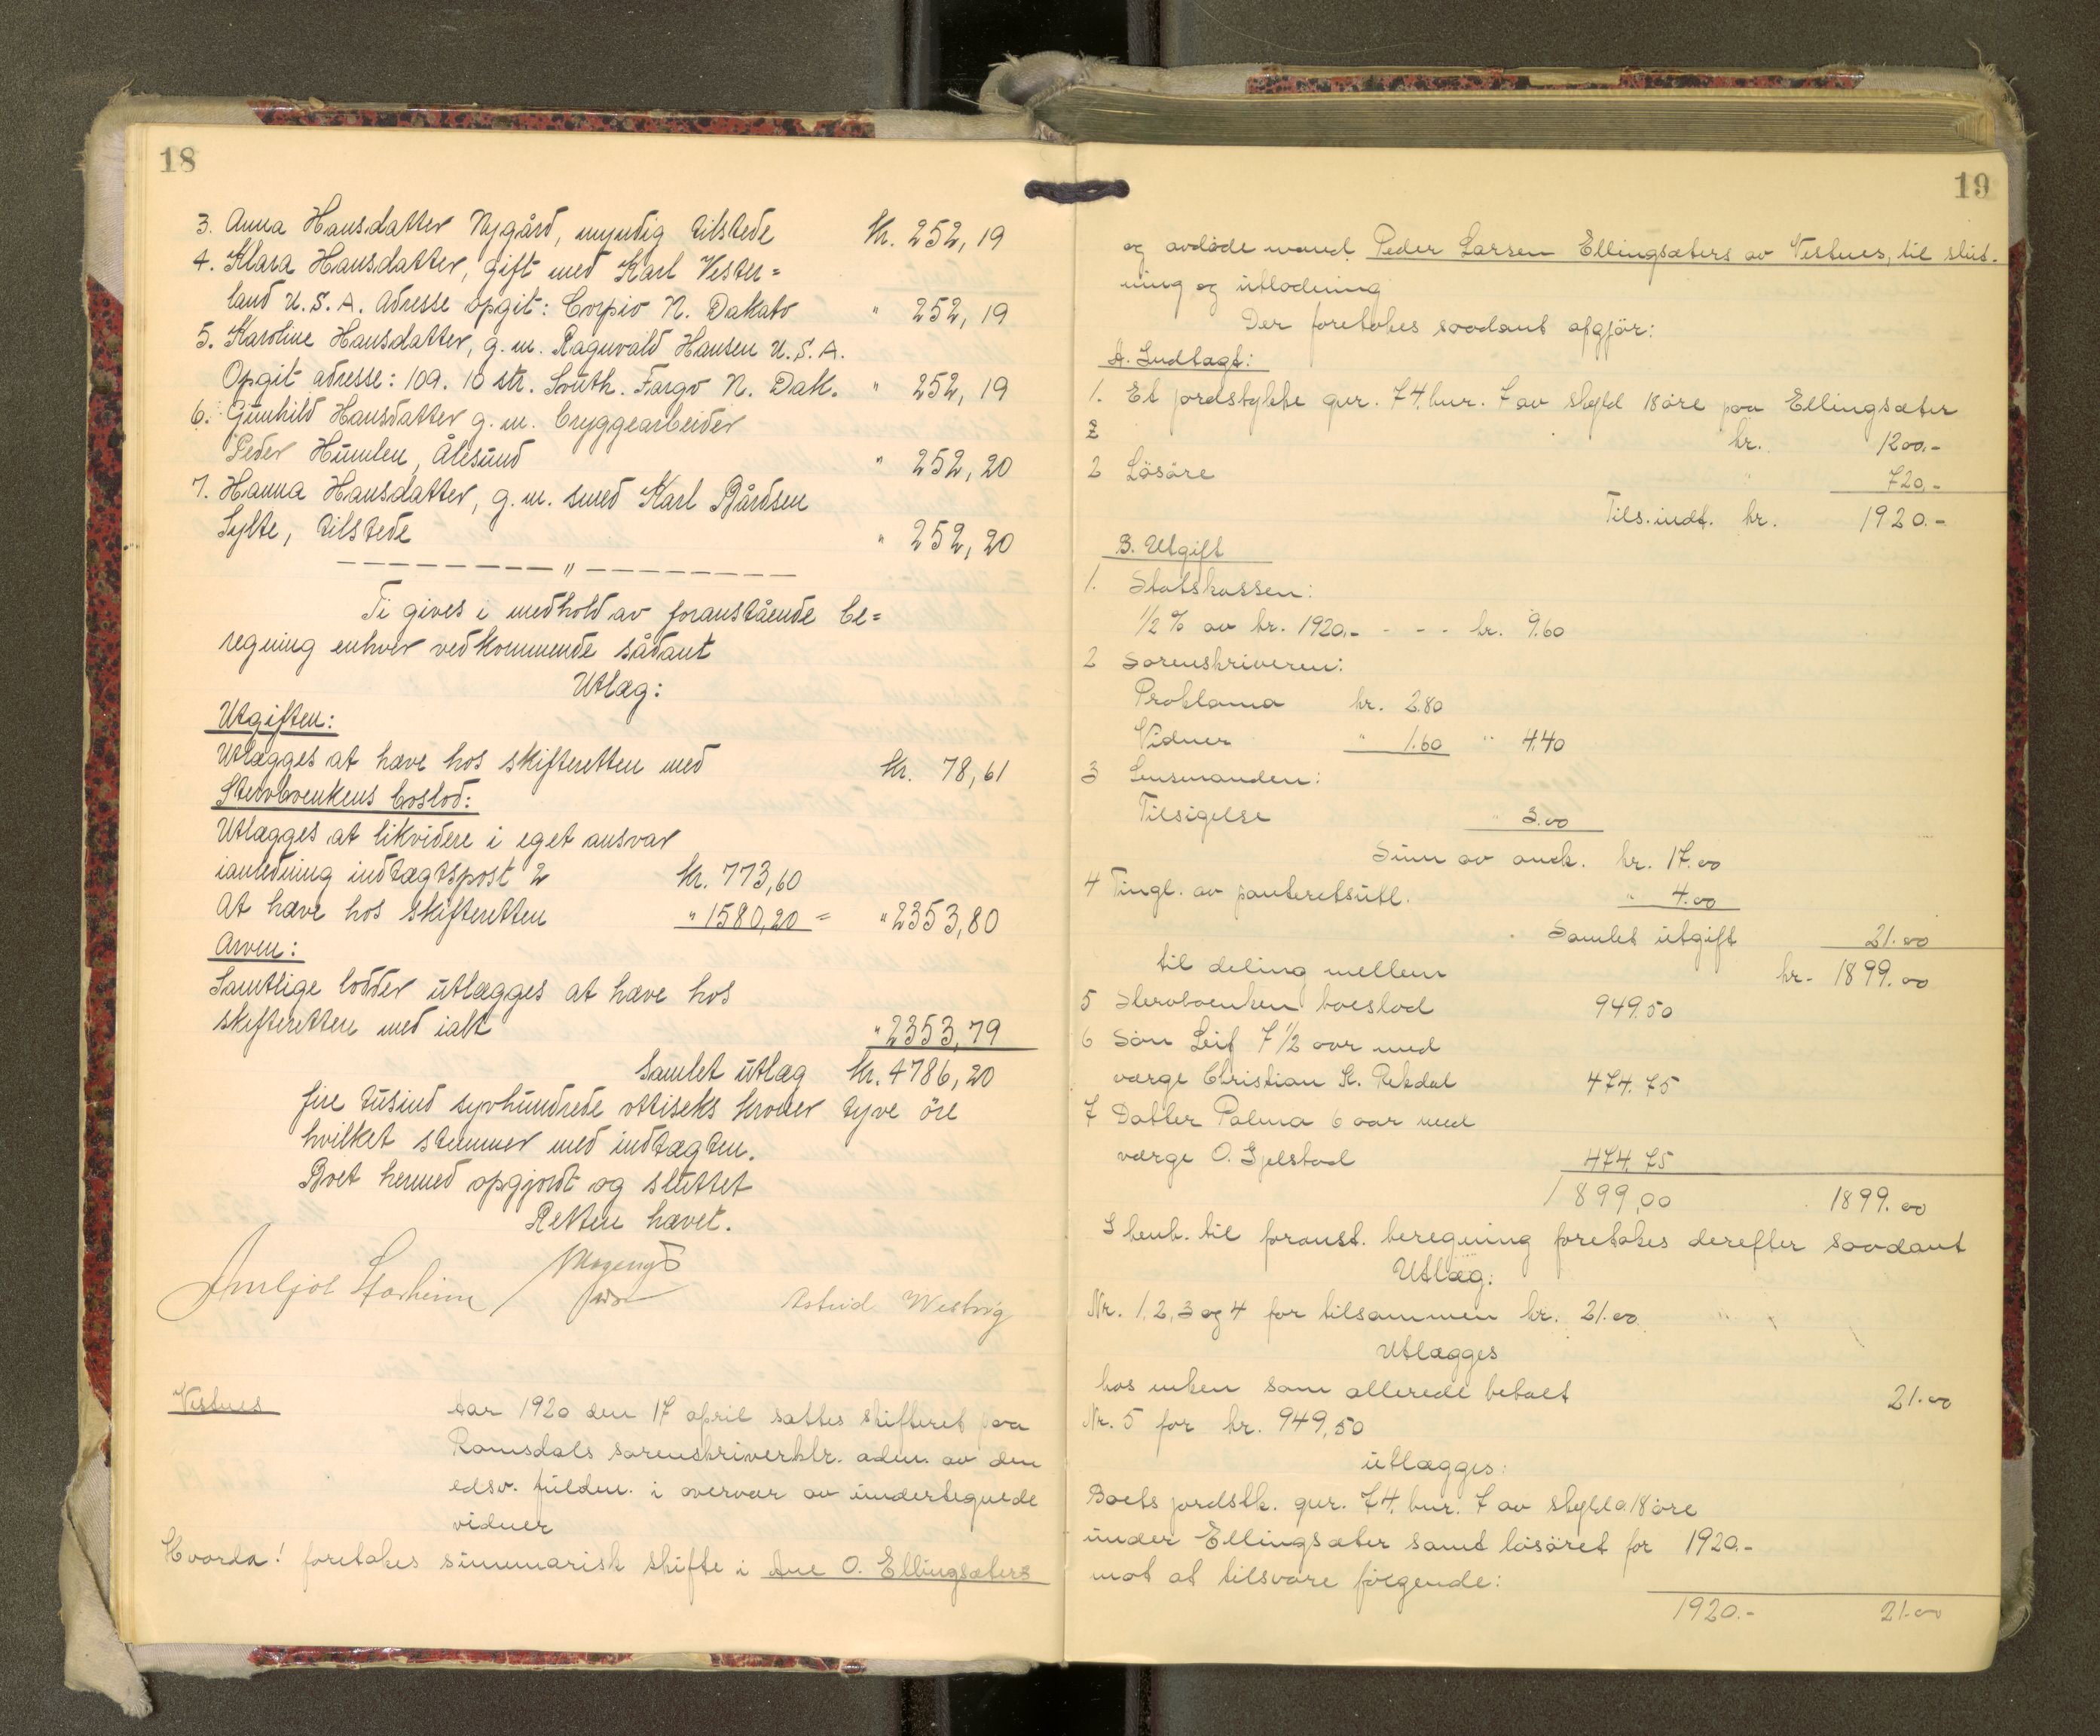 18
3. Anna Hansdatter Nygård, myndig tilstede kr. 252,19
4. Klara Hansdatter, gift med Karl Vester=
land U.S.A. adresse opgit: Corpio N. Dakato " 252,19
5. Karoline Hansdatter, g.m. Ragnvald Hansen U.S.A.
Opgit adresse: 109. 10 str. South. Fargo N. Dak. " 252,19
6. Gunhild Hansdatter g.m. bryggearbeider
Peder Humlen, Ålesund " 252,20
7. Hanna Hansdatter, g.m. smed Karl Bårdsen
Sylte, tilstede " 252,20
— — — — — — — " — — — — — — —
Ti gives i medhold av foranstående be=
regning enhver vedkommende sådant
Utlæg:
Utgiften:
Utlægges at hæve hos skifteretten med kr. 78,61
Stervboenkens boslod:
Utlægges at likvidere i eget ansvar
ianledning indtægtspost 2 kr. 773,60
At hæve hos skifteretten " 1580,20 = " 2353,80
Arven:
Samtlige lodder utlægges at hæve hos
skifteretten med ialt " 2353,79
Samlet utlæg kr. 4786,20
fire tusind syvhundrede ottiseks kroner tyve öre
hvilket stemmer med indtægten.
Boet hermed opgjordt og sluttet
Retten hævet.
Storheim
Astrid Westvig
Vestnes
Aar 1920 den 17 april sattes skifteret paa
Romsdals sorenskriverktr. adm. av den
edsv. fuldm. i overvær av undertegnede
vidner
Hvorda! foretakes summarisk skifte i Ane O. Ellingsæters
19
og avdöde mand Peder Larsen Ellingsæters av Vestnes, til slut-
ning og utlodning
Der foretakes saadant opgjör:
A. Indtægt:
1. Et jordstykke gnr. 74. bnr. 7 av skyld 18 öre paa Ellingsæter
2 kr. 1200.-
2 Lösöre " 720.-
Tils. indt. kr. 1920.-
B. Utgift
1. Statskassen:
1/2 % av kr. 1920.- - - - kr. 9.60
2 Sorenskriveren:
Proklama kr. 2.80
Vidner " 1.60 " 4.40
3 Lensmanden:
Tilsigelse " 3.00
Sum av kr. 17.00
4 Tingl. av panteretsutl. " 4.00
Samlet utgift 21.00
til deling mellem kr. 1899.00
5 Stervboenken boeslod 949.50
6 Sön Leif 7 1/2 aar med
værge Christian K. Rekdal 474.75
7 Datter Palma 6 aar med
værge O. Gjelstad 474.75
1899,00 1899.00
I henh. til foranst. beregning foretakes derefter saadant
Utlæg:
Nr. 1, 2, 3 og 4 for tilsammen kr. 21.00
Utlægges
hos enken som allerede betalt 21.00
Nr. 5 for kr. 949,50
utlægges:
Boets jordstk. gnr. 74. bnr. 7 av skyld 18 öre
under Ellingsæter samt lösöret for 1920.-
mot at tilsvare fölgende:
1920.- 21.00